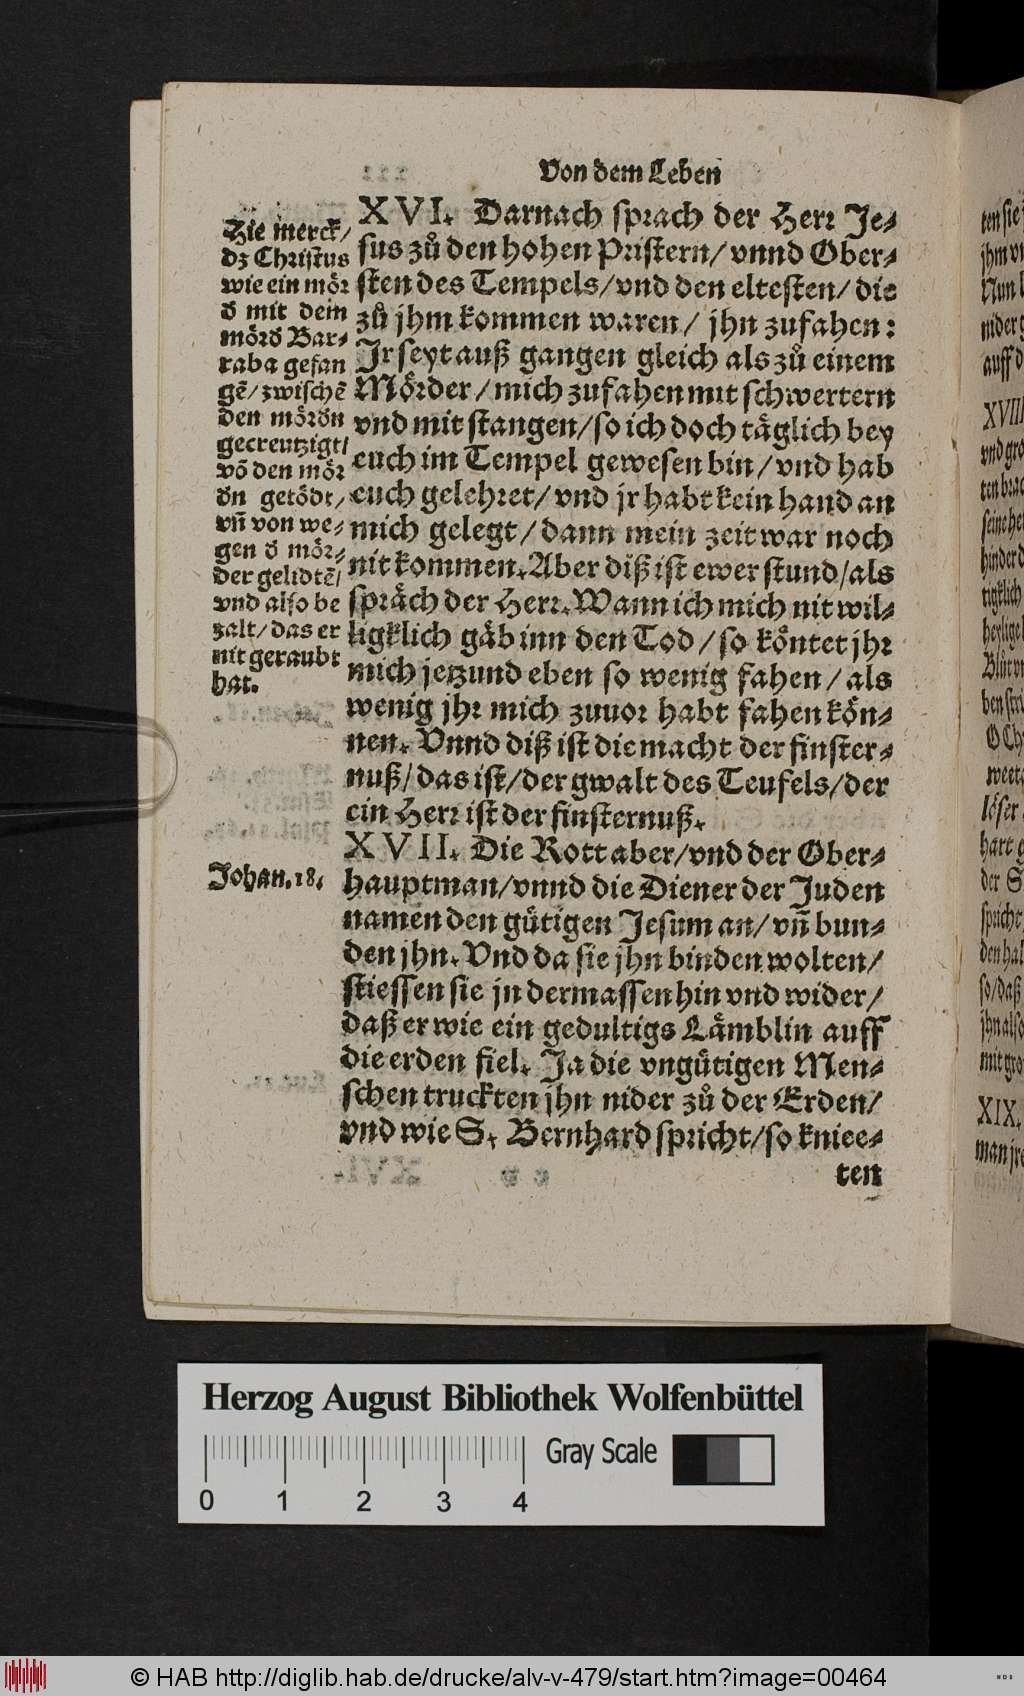 Von dem Leben
Hie merck/
dz Christus
wie ein mör
d mit dem
mörd Bar⸗
raba gefan
gẽ/ zwischẽ
den mördn
gecreutzigt/
võ den mör
dn getödt/
vñ von we⸗
gen d mör⸗
der gelidtẽ/
vnd also be
zalt/ das er
nit geraubt
hat.
XVI. Darnach sprach der Herr Je⸗
sus zů den hohen Pristern/ vnnd Ober⸗
sten des Tempels/ vnd den eltesten/ die
zů jhm kommen waren/ jhn zufahen:
Ir seyt auß gangen gleich als zů einem
Mörder/ mich zufahen mit schwertern
vnd mit stangen/ so ich doch täglich bey
euch im Tempel gewesen bin/ vnd hab
euch gelehret/ vnd jr habt kein hand an
mich gelegt/ dann mein zeit war noch
nit kommen. Aber diß ist ewer stund/ als
spräch der Herr. Wann ich mich nit wil⸗
ligklich gäb inn den Tod/ so köntet jhr
mich jetzund eben so wenig fahen/ als
wenig jhr mich zuuor habt fahen kön⸗
nen. Vnnd diß ist die macht der finster⸗
nuß/ das ist/ der gwalt des Teufels/ der
ein Herr ist der finsternuß.
Johan.18.
XVII. Die Rott aber/ vnd der Ober⸗
hauptman/ vnnd die Diener der Juden
namen den gütigen Jesum an/ vñ bun⸗
den jhn. Vnd da sie jhn binden wolten/
stiessen sie jn dermassen hin vnd wider/
daß er wie ein gedultigs Lämblin auff
die erden fiel. Ja die vngütigen Men⸗
schen truckten jhn nider zů der Erden/
vnd wie S. Bernhard spricht/ so kniee⸗
ten
ten sie
jhm
Nun
nider
auff d
XVIII
vnd
hinder d
tigklich
O Ch
löser
hart g
der S
spricht
so/ daß
XIX.
man
Herzog August Bibliothek Wolfenbüttel
Gray Scale
0 1 2 3 4
© HAB http://diglib.hab.de/drucke/alv-v-479/start.htm?image=00464